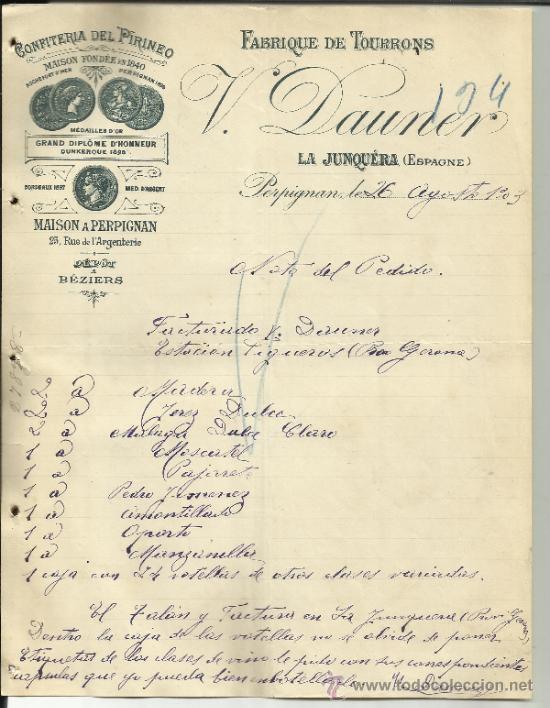 CONFITERIA DEL PIRINEO
MAISON FONDÉE EN 1840
ROCHEFORT S/MER PERPIGNAN 1896
MÉDAILLES D'OR
GRAND DIPLÔME D'HONNEUR
DUNKERQUE 1898
BORDEAUX 1897 MED. D'ARGENT
MAISON A PERPIGNAN
25, Rue de l'Argenterie
DÉPÔT
A
BÉZIERS
FABRIQUE DE TOURRONS
V. Dauner
194
LA JUNQUÉRA (ESPAGNE)
Perpignan, le 26 Agosto 1903
Nota del Pedido.
Facturado V. Dauner
Estación Figueras (Prov Gerona)
2 a Madera
2 a Jerez Dulce
2 a Malaga Dulce Claro
1 a Moscatel
1 a Pajarete
1 a Pedro Jimenez
1 a Amontillado
1 a Oporto
1 a Manzanilla
1 caja con 24 votellas de otras clases variadas.
El Talón y Factura en La Junquera (Prov Gerona)
Dentro la caja de las votellas no se olvide de poner
Etiquetas de los clases de vino le pido con sus correspondientes
capsulas que yo pueda bien enbotellarlo
todocoleccion
www.todocoleccion.net